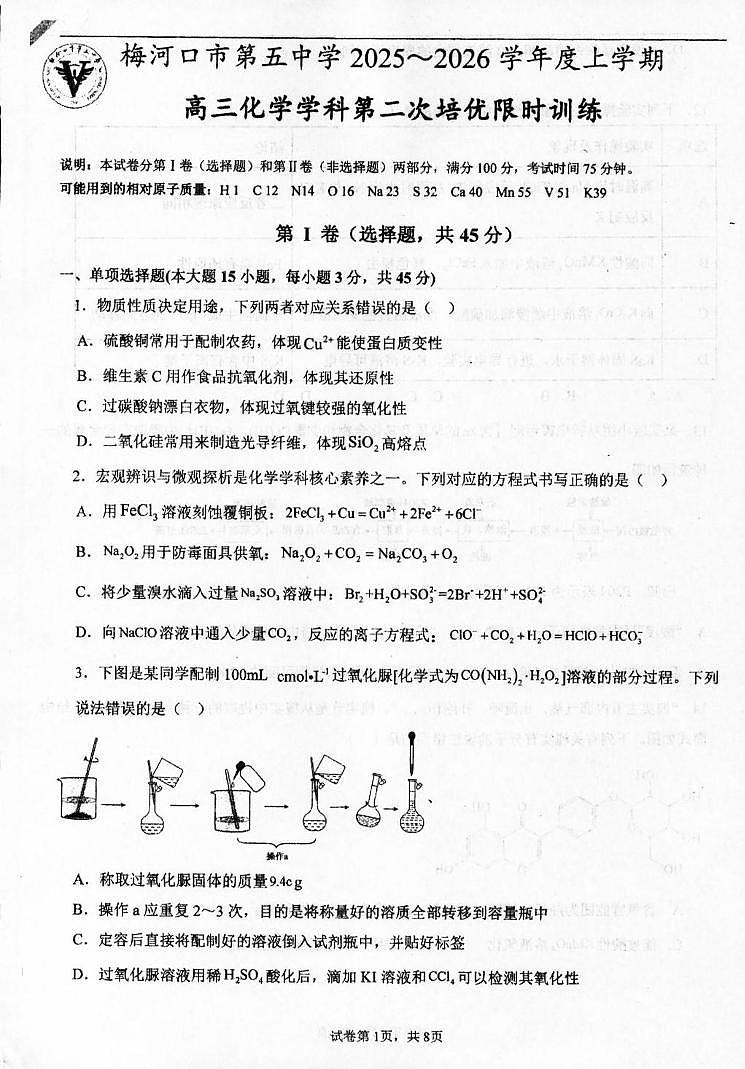 梅河口市第五中学 2025～2026 学年度上学期
高三化学学科第二次培优限时训练
说明：本试卷分第Ⅰ卷（选择题）和第Ⅱ卷（非选择题）两部分，满分 100 分，考试时间 75 分钟。
可能用到的相对原子质量：H 1 C 12 N14 O 16 Na 23 S 32 Ca 40 Mn 55 V 51 K39
第 Ⅰ 卷（选择题，共 45 分）
一、单项选择题(本大题 15 小题，每小题 3 分，共 45 分)
1．物质性质决定用途，下列两者对应关系错误的是（ ）
A．硫酸铜常用于配制农药，体现Cu²⁺能使蛋白质变性
B．维生素 C 用作食品抗氧化剂，体现其还原性
C．过碳酸钠漂白衣物，体现过氧键较强的氧化性
D．二氧化硅常用来制造光导纤维，体现SiO₂高熔点
2．宏观辨识与微观探析是化学学科核心素养之一。下列对应的方程式书写正确的是（ ）
A．用FeCl₃溶液刻蚀覆铜板：2FeCl₃+Cu=Cu²⁺+2Fe²⁺+6Cl⁻
B．Na₂O₂用于防毒面具供氧：Na₂O₂+CO₂=Na₂CO₃+O₂
C．将少量溴水滴入过量Na₂SO₃溶液中：Br₂+H₂O+SO₃²⁻=2Br⁻+2H⁺+SO₄²⁻
D．向NaClO溶液中通入少量CO₂，反应的离子方程式：ClO⁻+CO₂+H₂O=HClO+HCO₃⁻
3．下图是某同学配制 100mL cmol•L⁻¹过氧化脲[化学式为CO(NH₂)₂·H₂O₂]溶液的部分过程。下列
说法错误的是（ ）
操作a
A．称取过氧化脲固体的质量9.4c g
B．操作 a 应重复 2～3 次，目的是将称量好的溶质全部转移到容量瓶中
C．定容后直接将配制好的溶液倒入试剂瓶中，并贴好标签
D．过氧化脲溶液用稀H₂SO₄酸化后，滴加 KI 溶液和CCl₄可以检测其氧化性
试卷第 1页，共 8页